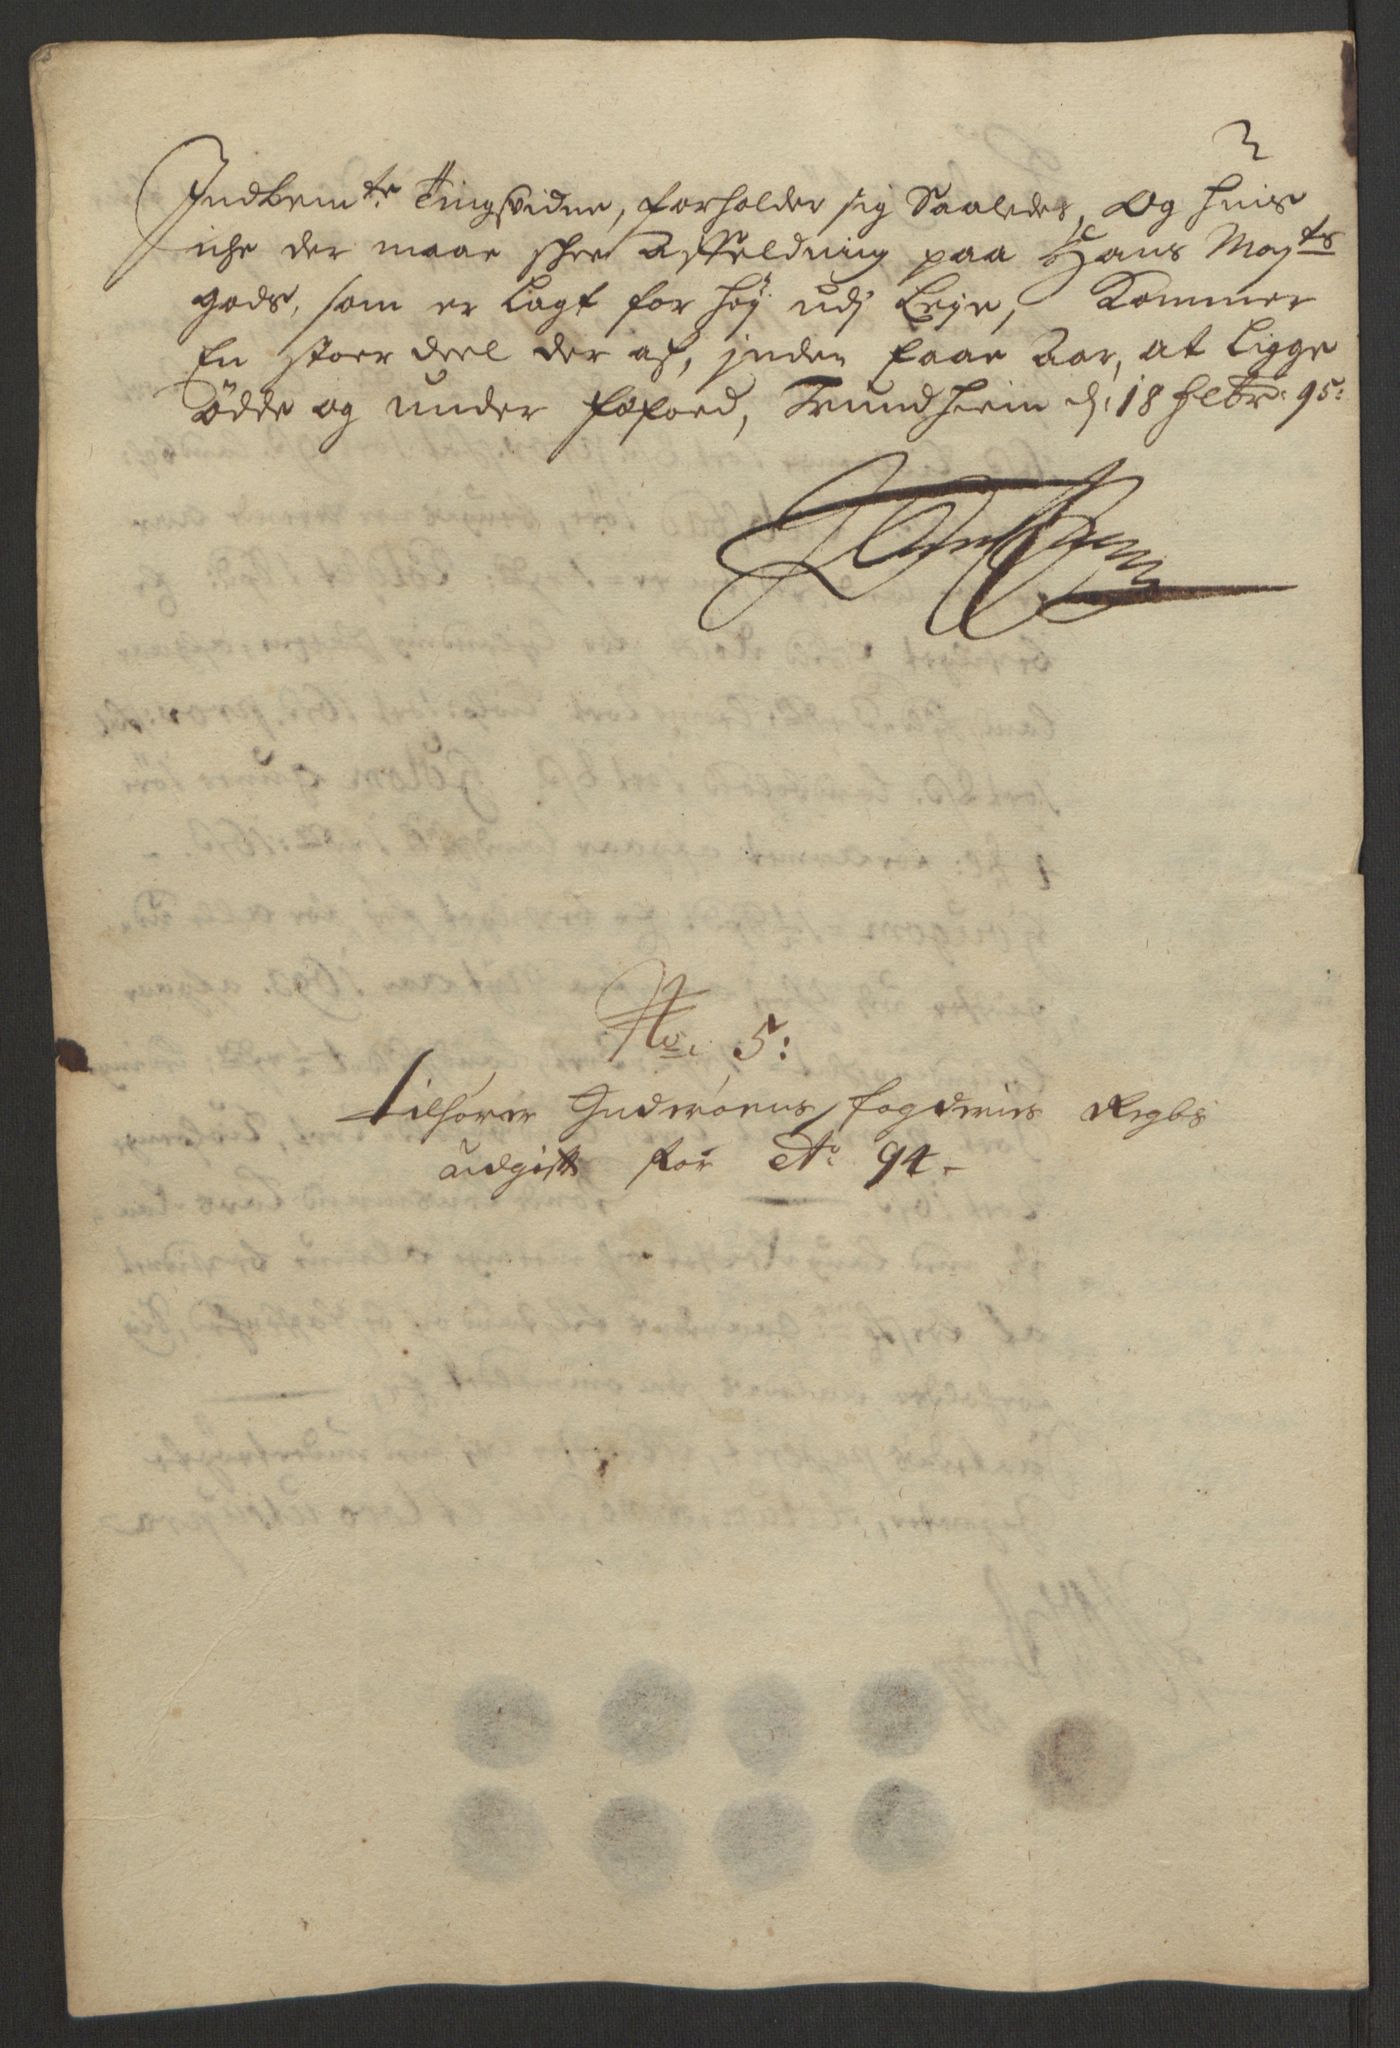 3
Indbem.te Tingsvidne, forholder sig Saaledes, og huis
iche der maae skee Affeldning paa Hans May.ts
gods, som er Lagt for høy udj Leje, Kommer
En stoer deel der af, jnden faae Aar, at Ligge
Ødde og under fæfoed, Trundhiem d: 18 Febr: 95:
No: 5:
Tilhører Inderøens fogderies Regbs
udgift for Ao 94.